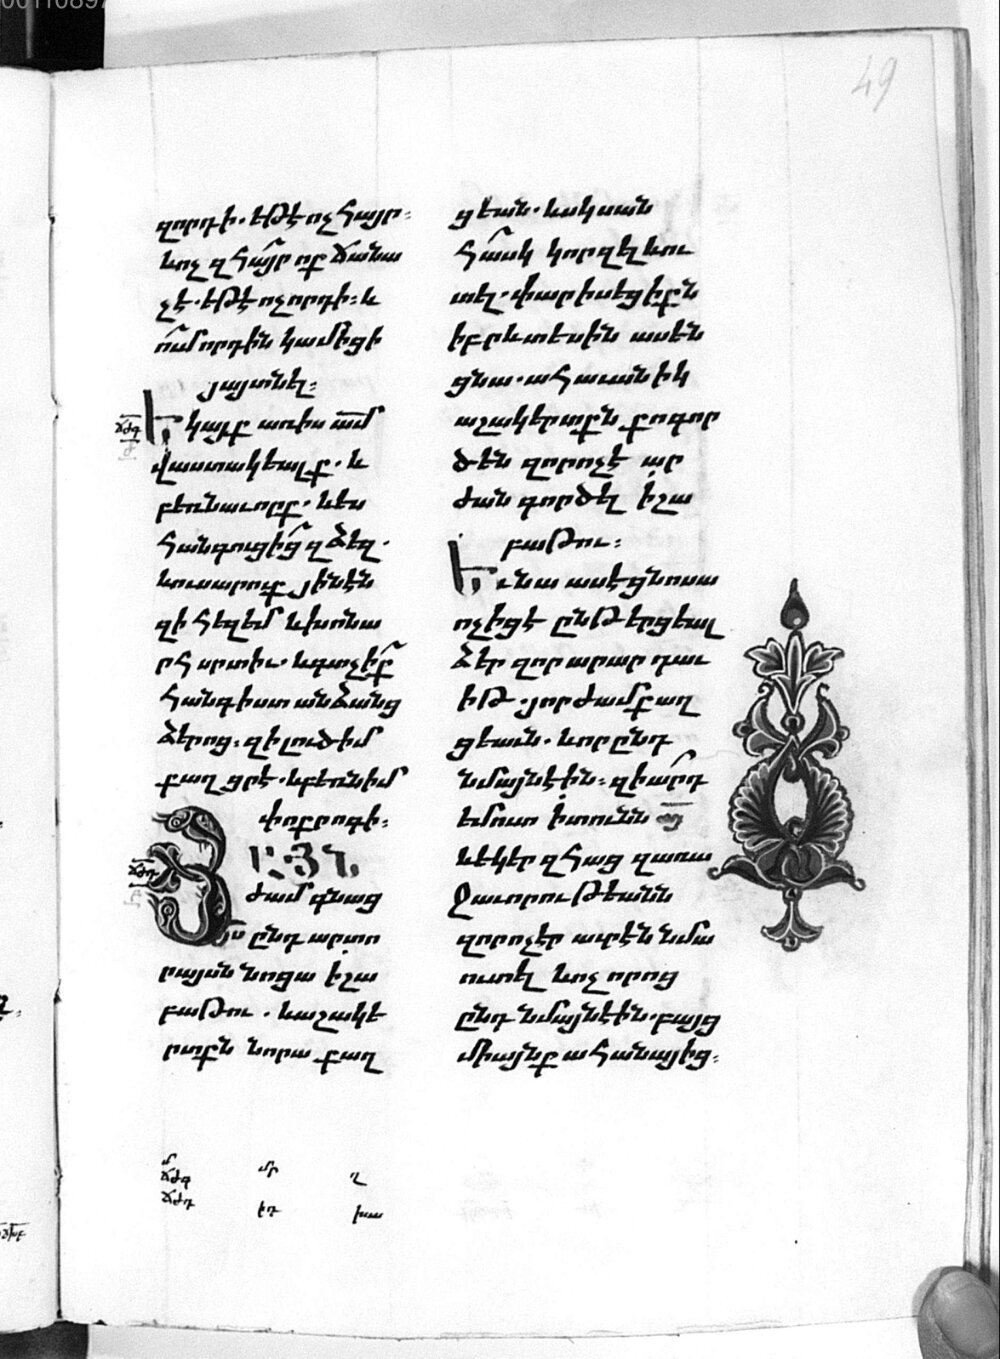 49
զորդի. եթէ ոչ հայր.
և ոչ զհայր ոք ճանա
չէ. եթէ ոչ որդի. և
ո՛ւմ որդին կամիցի
յայտնել։
Եկայք առիս ամ
վաստակեալք. և
բեռնաւորք. և ես
հանգուցից զձեզ.
նուսարուք յինէն
զի հեզ եմ և խոնա
րհ սրտիւ. և գտջիք
հանգիստ անձանց
ձերոց. զի լուծ իմ
քաղցր է. և բեռն իմ
փոքրոգի։
ՃԺԳ
Յ
ՃԺԴ
ժամ գնաց
յս ընդ արտո
րայսն նոցա ի շա
բաթու. և աշակե
րտքն նորա քաղ
ցեան. և սկսան
հասկ կորզել և ու
տել. փարիսեցիքն
իբրև տեսին ասեն
ցնա. ահաւասիկ
աշակերտքն քո գոր
ծեն զոր ոչ է ար
ժան գործել ի շա
բաթու։
Եւ նա ասէ ցնոսա
ոչ իցէ ընթերցեալ
ձեր զոր արար դաւ
իթ. յորժամ քաղ
ցեան. և որ ընդ
նմայն էին. զիարդ
եմուտ ի տունն այ
և եկեր զհաց զառա
ջաւորութեանն
զոր ոչ էր օրէն նմա
ուտել և ոչ որոց
ընդ նմայն էին. բայց
միայն քահանայից։
մ
ՃԺԳ
մր
ղ
ՃԺԴ
իդ
խա